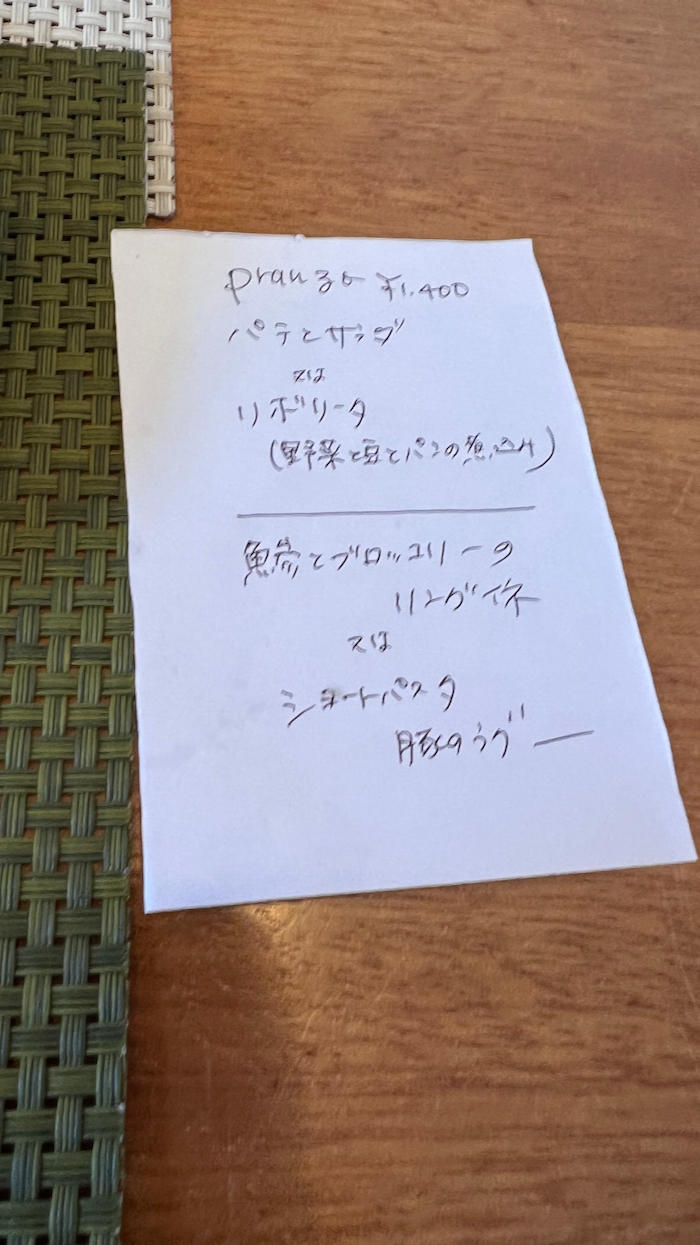 pranzo ¥1,400
パテとサラダ
又は
リボリータ
(野菜と豆とパンの煮込み)
とブロッコリーの
リングイネ
又は
ショートパスタ
豚のラグー